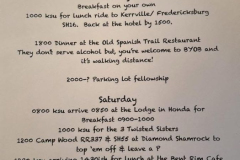 Breakfast on your own
1000 ksu for lunch ride to Kerrville/ Fredericksburg
SH16. Back at the hotel by 1500.
1800 Dinner at the Old Spanish Trail Restaurant
They don't serve alcohol but, you're welcome to BYOB and
it's walking distance!
2000-? Parking lot fellowship
Saturday
0800 ksu arrive 0850 at the Lodge in Honda for
Breakfast 0900-1000
1000 ksu for the 3 Twisted Sisters
1200 Camp Wood RR337 & SH55 at Diamond Shamrock to
top 'em off & leave a P
for lunch at the Bent Rim Cafe